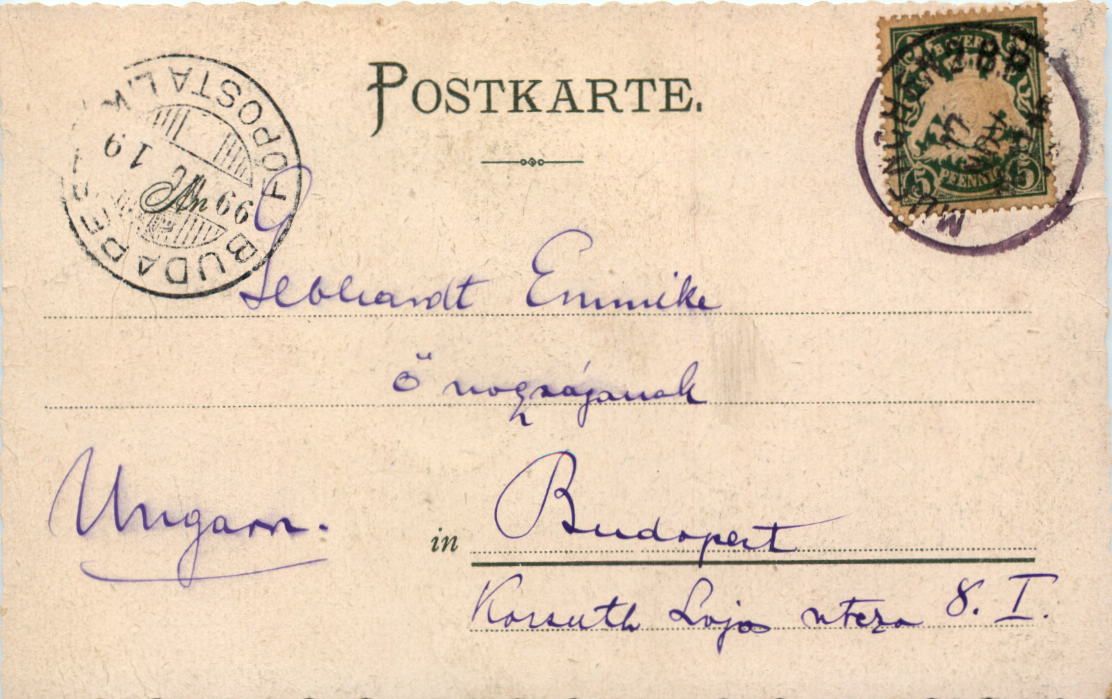 POSTKARTE.
BAYERN
5 PFENNIG 5
BUDAPEST FŐPOSTA
99
19
Gebhardt Emmike
ő nagyságának
Ungarn.
in Budapest
Kossuth Lajos utcza 8. I.